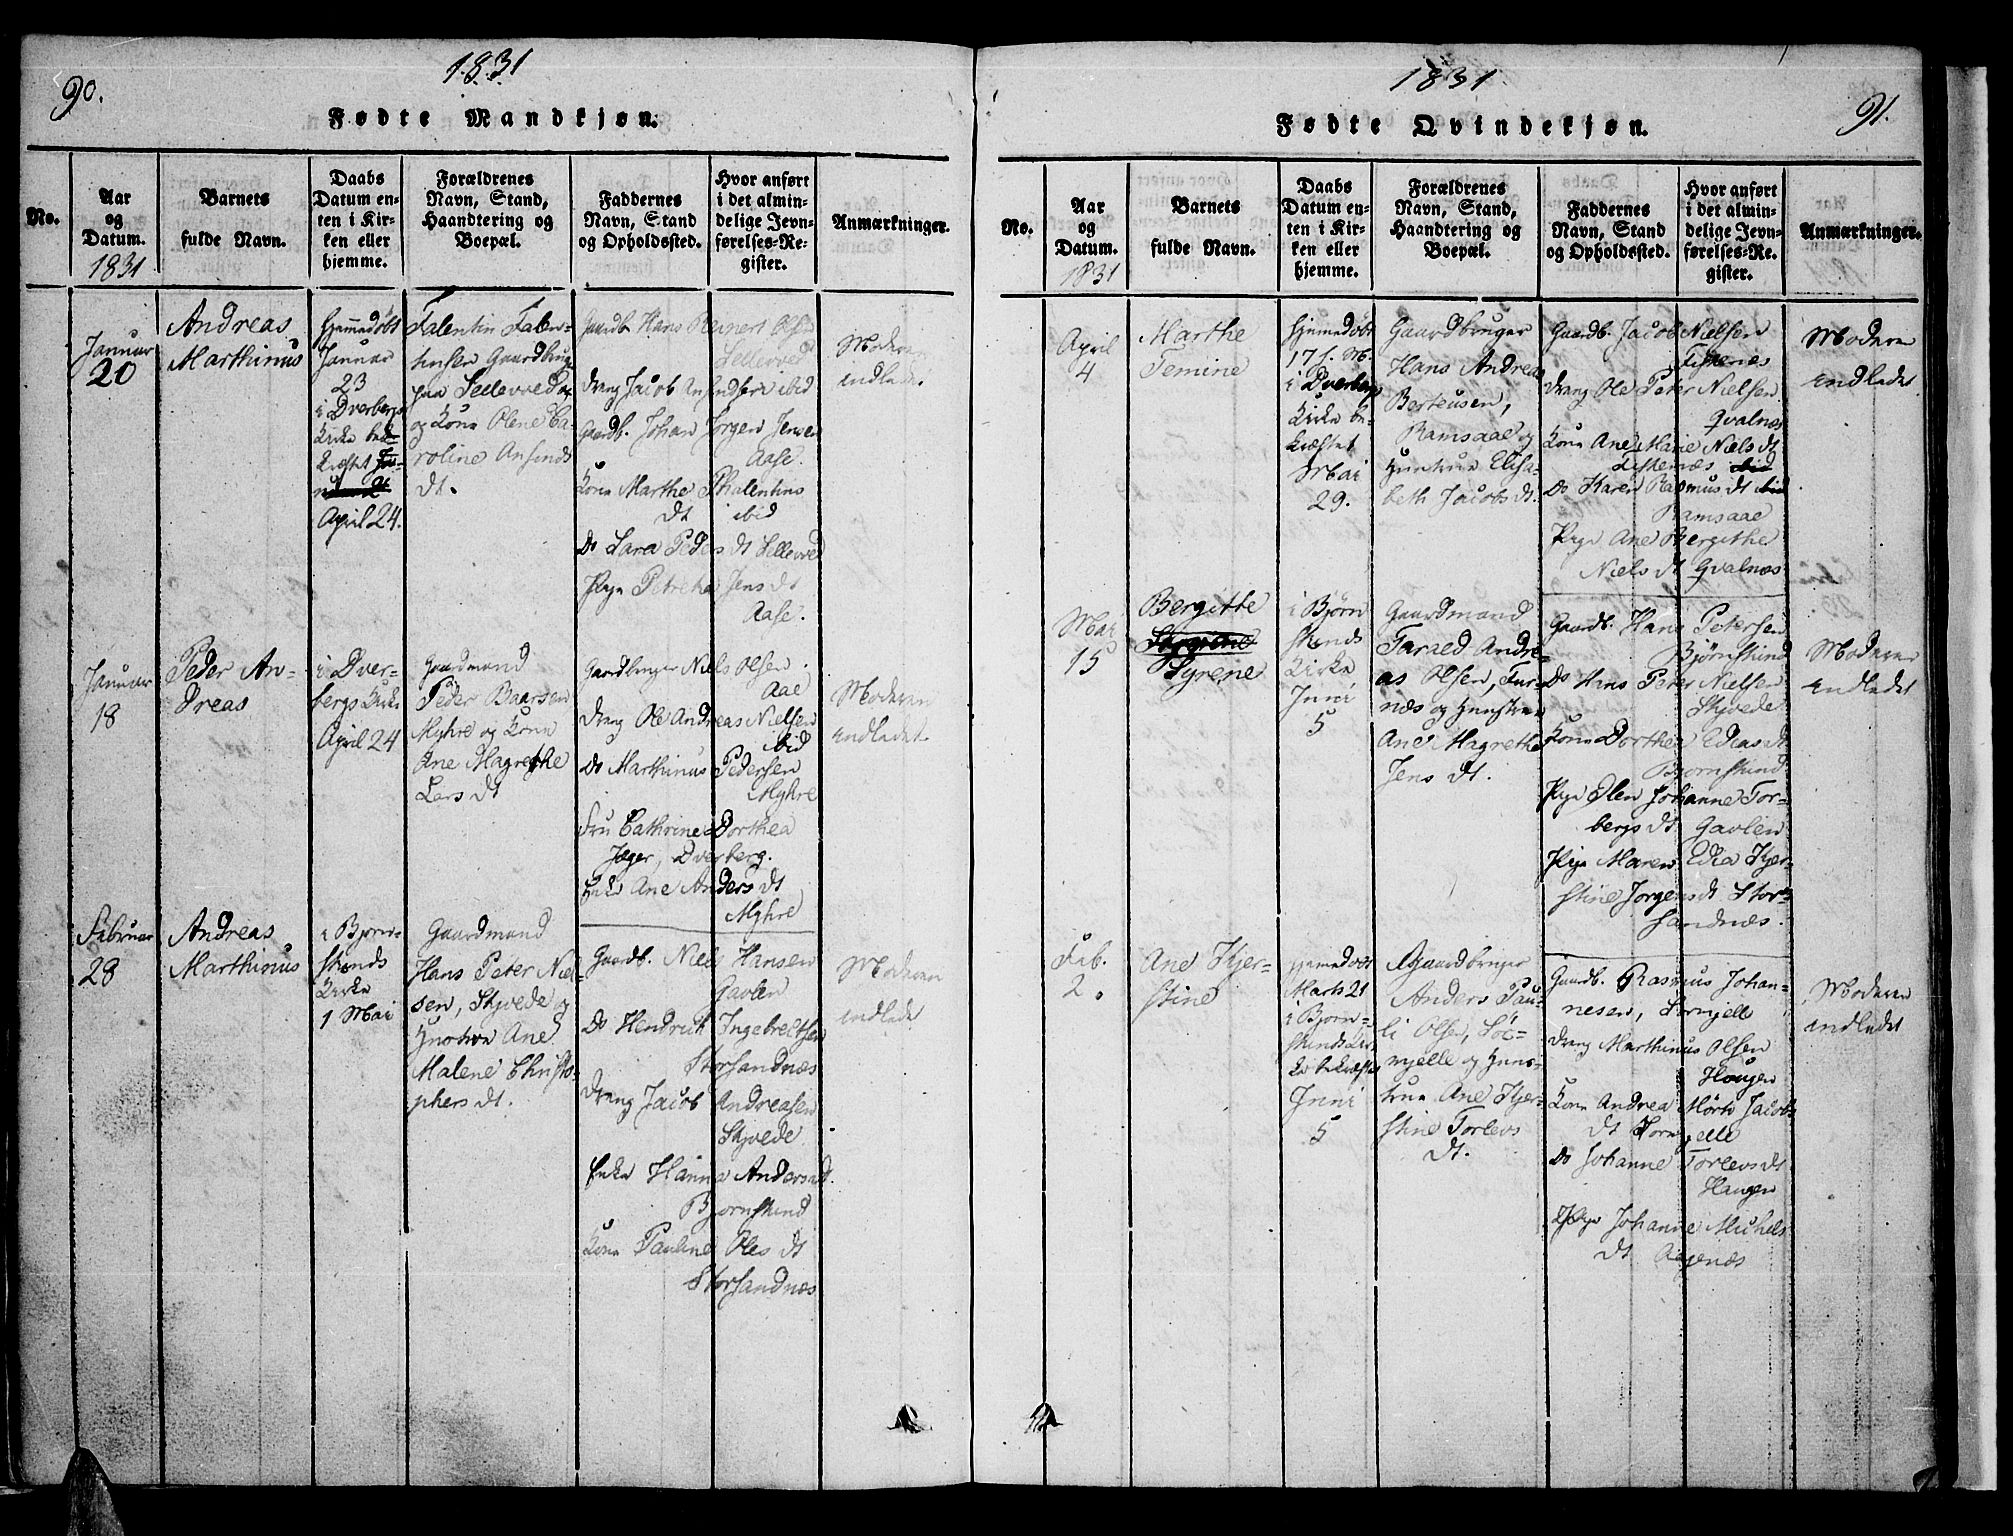 90.
1831
Fødte Mandkjøn.
No.
Aar
og
Datum.
1831
Barnets
fulde Navn.
Daabs
Datum en-
ten i Kir-
ken eller
hjemme.
Forældrenes
Navn, Stand,
Haandtering og
Boepæl.
Faddernes
Navn, Stand
og Opholdssted.
Hvor anført
i det almin-
delige Jevn-
førelses-Re-
gister.
Anmærkninger.
Januar
20
Andreas
Marthinus
Hjemmedøbt
Januar
23
i Dverbergs
Kirke bek-
ræftet
April 24.
Falentin Falen-
tinsen Gaardbruger
paa Sellevved
og Kone Olene Ca-
roline Ansends
dt.
Gaardb. Hans Reinert Olsen
Sellevved
Dreng Jacob Ansendsen ibid
Gaardb. Johan Jørgen Jensen
Aase.
Kone Marthe Phalentins
dt ibid
Do Sara Peders dt Sellevved
Pige Petrikka Jens dt
Aase.
Moderen
indledet.
Januar
18
Peder An-
dreas
i Dver-
bergs Kirke
April 24
Gaardmand
Peder Baarsen
Myhre og Kone
Ane Magrethe
Lars dt
Gaardbruger Niels Olsen
Aae
Dreng Ole Andreas Nielsen
ibid
Do Marthinus Pedersen
Myhre
Fru Cathrine Dorthea
Jæger, Dverberg.
Enke Ane Anders dt
Myhre
Moderen
indledet.
Februar
28
Andreas
Marthinus
i Bjørn-
skinds
Kirke
1 Mai
Gaardmand
Hans Peter Niel-
sen, Skjvede og
Hustrue Ane
Malene Christo-
phers dt.
Gaardb. Niels Hansen
Gavlen
Do Hendrich Ingebrethsen
Storsandnæs
Dreng Jacob Andreasen
Skjvede
Enke Hanna Anders dt.
Bjørnskind
Kone Pauline Oles dt
Storsandnæs
Moderen
indledet
1831
91.
Fødte Qvindekjøn.
No.
Aar
og
Datum.
1831
Barnets
fulde Navn.
Daabs
Datum en-
ten i Kir-
ken eller
hjemme.
Forældrenes
Navn, Stand,
Haandtering og
Boepæl.
Faddernes
Navn, Stand
og Opholdssted.
Hvor anført
i det almin-
delige Jevn-
førelses-Re-
gister.
Anmærkninger.
April
4
Marthe
Temine
Hjemmedøbt
17 s. M.
i Dverbergs
Kirke be-
kræftet
Mai
29.
Gaardbruger
Hans Andreas
Berteusen,
Ramsaae og
Hustrue Elisa-
beth Jacobs dt.
Gaardb. Jacob Nielsen
Fiskenæs
Dreng Ole Peter Nielsen
Qvalnæs
Kone Ane Marie Niels dt
Fiskenæs
Do Karen Rasmus dt
Ramsaae
Pige Ane Bergithe
Niels dt Qvalnæs
Moderen
indledet
Mai
15
Bergitte
Syrene
i Bjørn
skinds
Kirke
Juni
5
Gaardmand
Tarald Andre-
as Olsen, Tur-
næs og Hustrue
Ane Magrethe
Jens dt.
Gaardb. Hans Petersen
Bjørnskind
Do Hans Peter Nielsen
Skjvede
Kone Dorthea Edias dt
Bjørnskind
Pige Elen Johanne Tor-
bergs dt. Gavlen
Pige Maren Edia Kjer-
stine Jørgens dt Stor-
sandnæs.
Moderen
indledet
Feb.
2.
Ane Kjer-
stine
Hjemmedøbt
Marts 21
i Bjørn-
skinds Kir-
ke bekræftet
Juni
5
Gaardbruger
Anders Pau-
li Olsen, Sør-
mjelle og Hus-
true Ane Kjer-
stine Torlevs
dt.
Gaardb. Rasmus Johan-
nesen, Sørmjelle
Dreng Marthinus Olsen
Hougen
Kone Andrea Mørk Jacobs
dt Sørmjelle
Do Johanne Torlevs dt
Haugen
Pige Johanne Michels
dt
Moderen
indledet